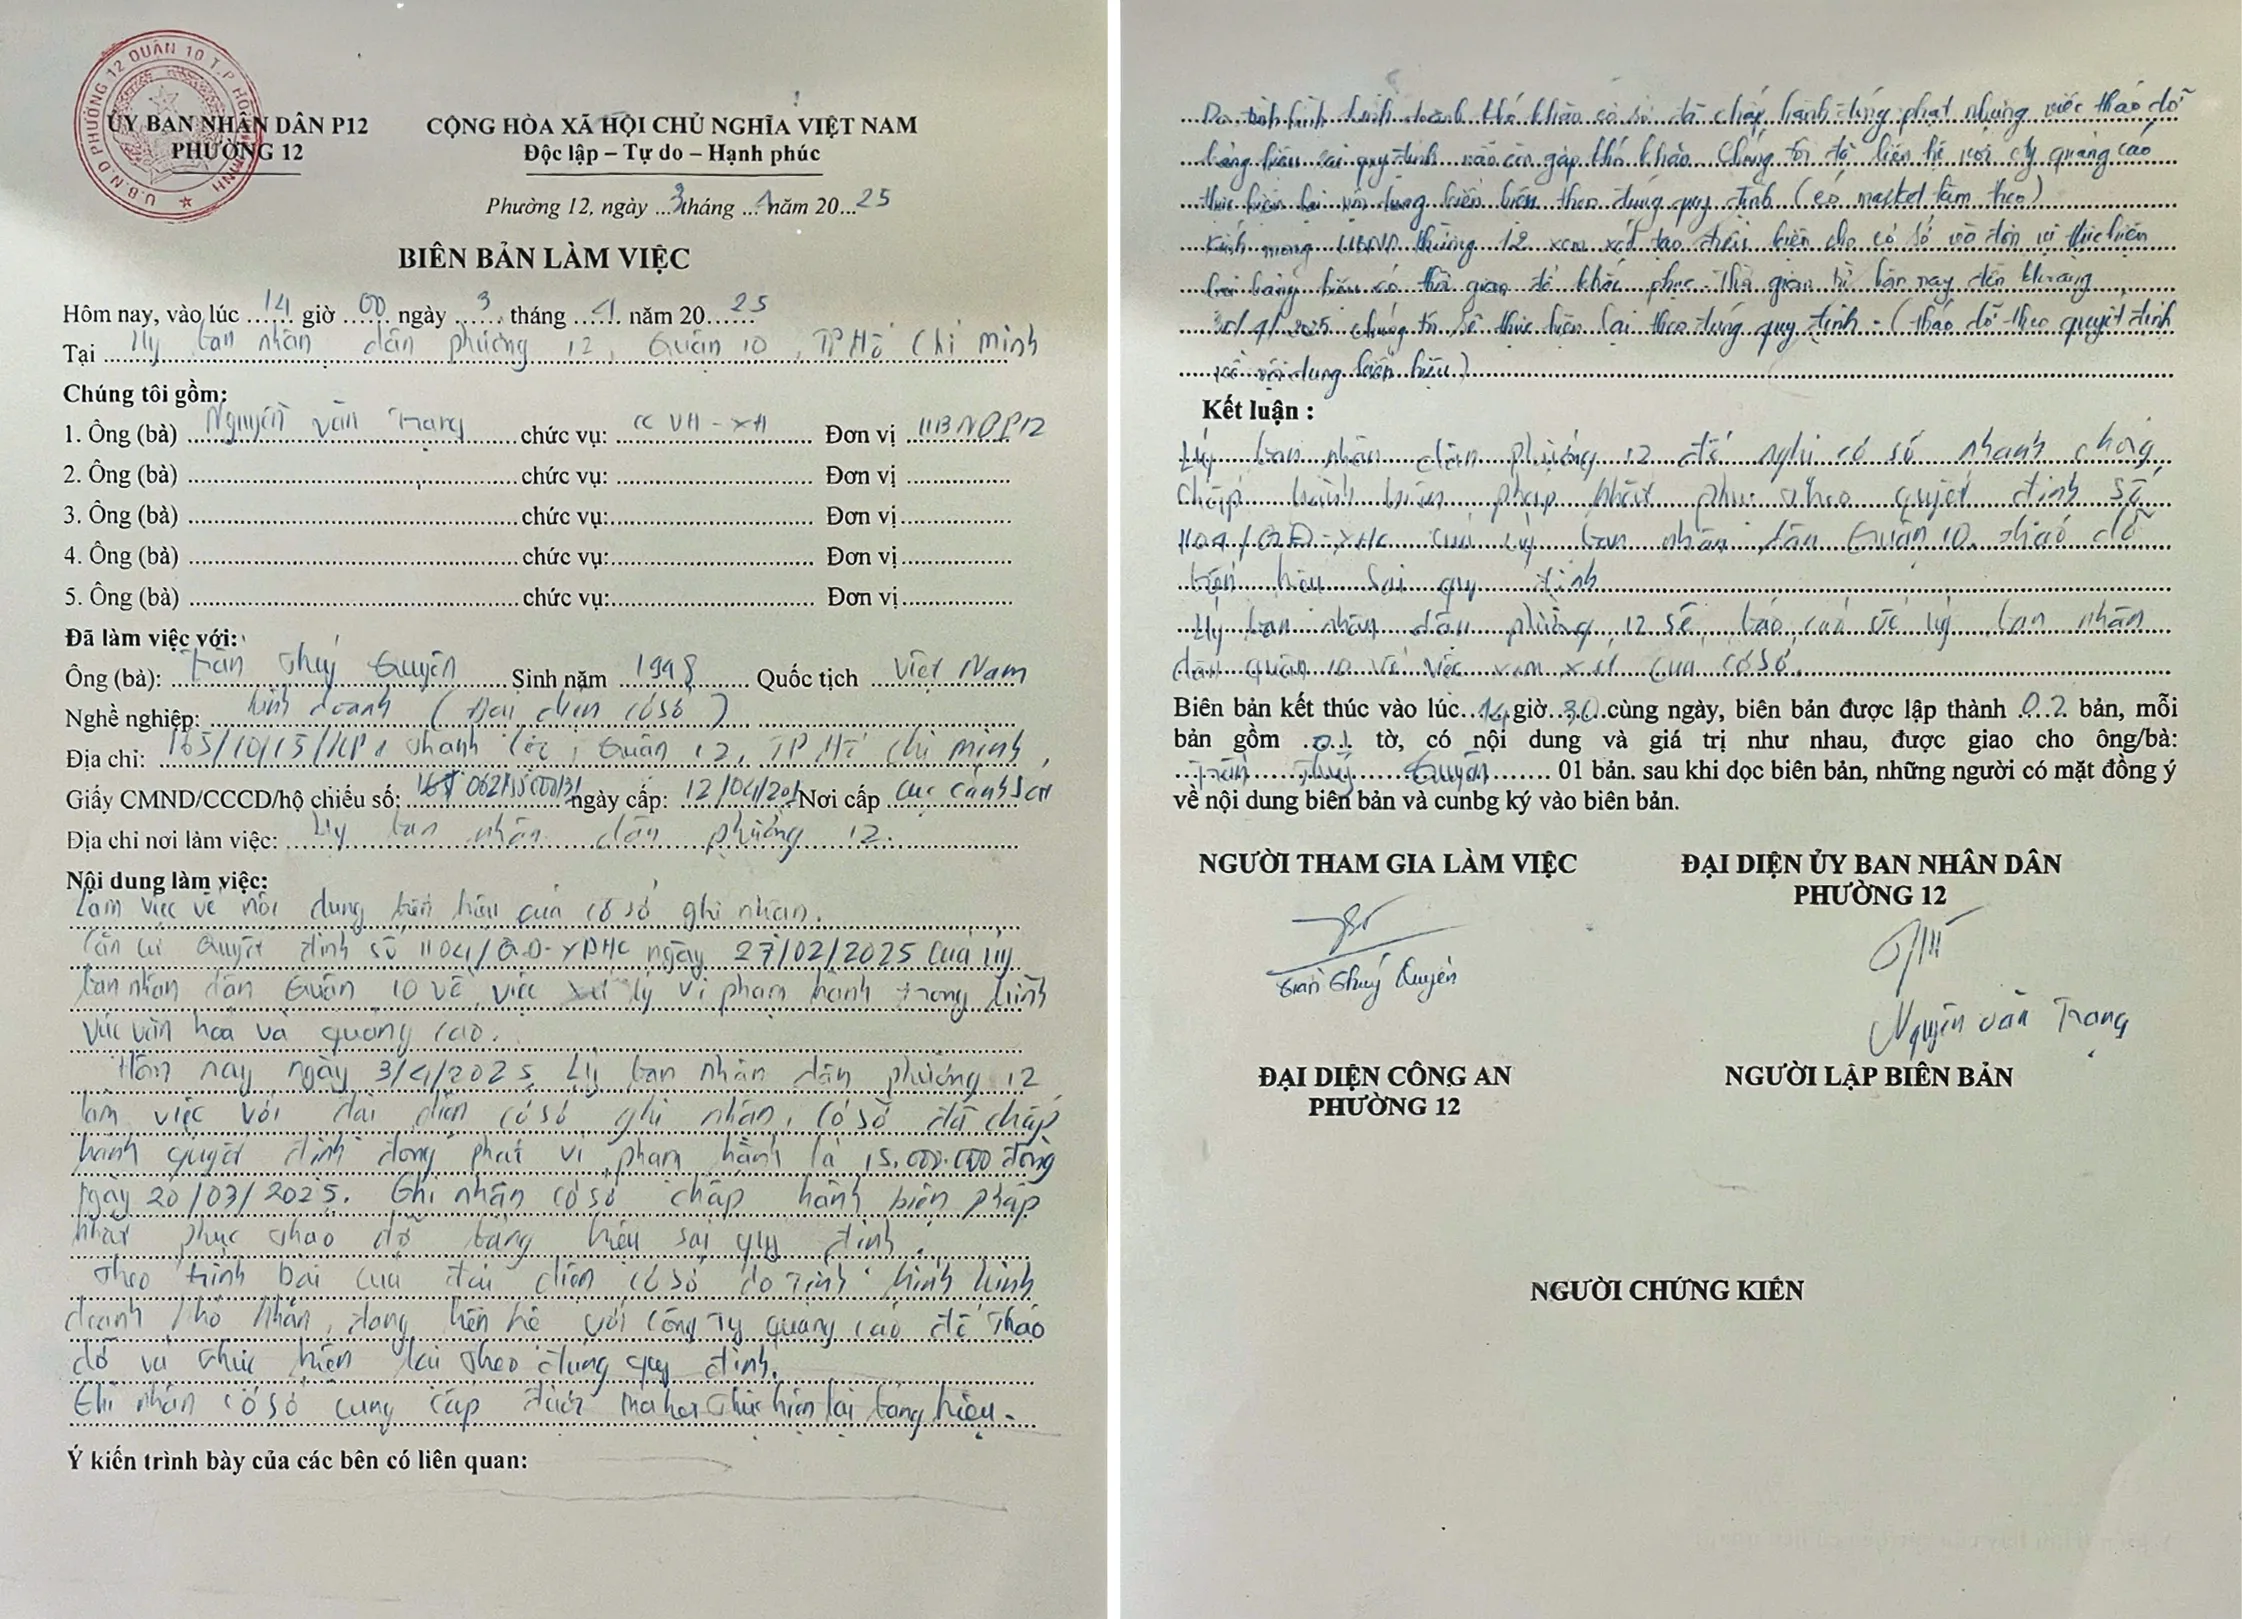 U.B.N.D PHƯỜNG 12 QUẬN 10 T.P HỒ CHÍ MINH
ỦY BAN NHÂN DÂN P12
PHƯỜNG 12
CỘNG HÒA XÃ HỘI CHỦ NGHĨA VIỆT NAM
Độc lập – Tự do – Hạnh phúc
Phường 12, ngày 3 tháng 4 năm 2025
BIÊN BẢN LÀM VIỆC
Hôm nay, vào lúc 14 giờ 00 ngày 3 tháng 4 năm 2025
Tại Ủy ban nhân dân phường 12, Quận 10, TP Hồ Chí Minh
Chúng tôi gồm:
1. Ông (bà) Nguyễn Văn Trang chức vụ: CC VH-XH Đơn vị UBND P12
2. Ông (bà) chức vụ: Đơn vị
3. Ông (bà) chức vụ: Đơn vị
4. Ông (bà) chức vụ: Đơn vị
5. Ông (bà) chức vụ: Đơn vị
Đã làm việc với:
Ông (bà): Trần Thúy Quyên Sinh năm 1998 Quốc tịch Việt Nam
Nghề nghiệp: kinh doanh (Đại diện cơ sở)
Địa chỉ: 165/10/15/KP1 Thạnh Lộc, Quận 12, TP Hồ Chí Minh,
Giấy CMND/CCCD/hộ chiếu số: ngày cấp: Nơi cấp
Địa chỉ nơi làm việc: Ủy ban nhân dân phường 12.
Nội dung làm việc:
Làm việc về nội dung biển hiệu của cơ sở ghi nhận.
Căn cứ Quyết định số 1104/QĐ-XPHC ngày 27/02/2025 của Ủy
ban nhân dân Quận 10 về việc xử lý vi phạm hành trong lĩnh
vực văn hoá và quảng cáo.
Hôm nay ngày 3/4/2025 Ủy ban nhân dân phường 12
làm việc với đại diện cơ sở ghi nhận, cơ sở đã chấp
hành quyết định đóng phạt vi phạm hành là 15.000.000 đồng
ngày 20/03/2025. Ghi nhận cơ sở chấp hành biện pháp
khắc phục tháo dỡ bảng hiệu sai quy định.
Theo trình bài của đại diện cơ sở do tình hình kinh
doanh khó khăn, đang liên hệ với công ty quảng cáo để tháo
dỡ và thực hiện lại theo đúng quy định.
Ghi nhận cơ sở cung cấp được thực hiện lại bảng hiệu.
Ý kiến trình bày của các bên có liên quan:
Do tình hình kinh doanh khó khăn cơ sở đã chấp hành đóng phạt nhưng việc tháo dỡ
bảng hiệu sai quy định vẫn còn gặp khó khăn. Chúng tôi đã liên hệ với cty quảng cáo
thực hiện lại nội dung biển hiệu theo đúng quy định (có market làm theo)
Kính mong UBND Phường 12 xem xét tạo điều kiện cho cơ sở và đơn vị thực hiện
lại bảng hiệu có thời gian để khắc phục. Thời gian từ hôm nay đến khoảng
30/4/2025 chúng tôi sẽ thực hiện lại theo đúng quy định. (tháo dỡ theo quyết định
về nội dung biển hiệu)
Kết luận :
Ủy ban nhân dân phường 12 đề nghị cơ sở nhanh chóng
chấp hành biện pháp khắc phục theo quyết định số
1104/QĐ-XHC của Ủy ban nhân dân Quận 10. tháo dỡ
biển hiệu sai quy định
Ủy ban nhân dân phường 12 sẽ báo cáo về Ủy ban nhân
dân quận 10 về việc xem xét của cơ sở.
Biên bản kết thúc vào lúc 14 giờ 30 cùng ngày, biên bản được lập thành 02 bản, mỗi
bản gồm 01 tờ, có nội dung và giá trị như nhau, được giao cho ông/bà:
Trần Thúy Quyên 01 bản. sau khi dọc biên bản, những người có mặt đồng ý
về nội dung biên bản và cunbg ký vào biên bản.
NGƯỜI THAM GIA LÀM VIỆC
Trần Thúy Quyên
ĐẠI DIỆN ỦY BAN NHÂN DÂN
PHƯỜNG 12
Nguyễn Văn Trang
ĐẠI DIỆN CÔNG AN
PHƯỜNG 12
NGƯỜI LẬP BIÊN BẢN
NGƯỜI CHỨNG KIẾN